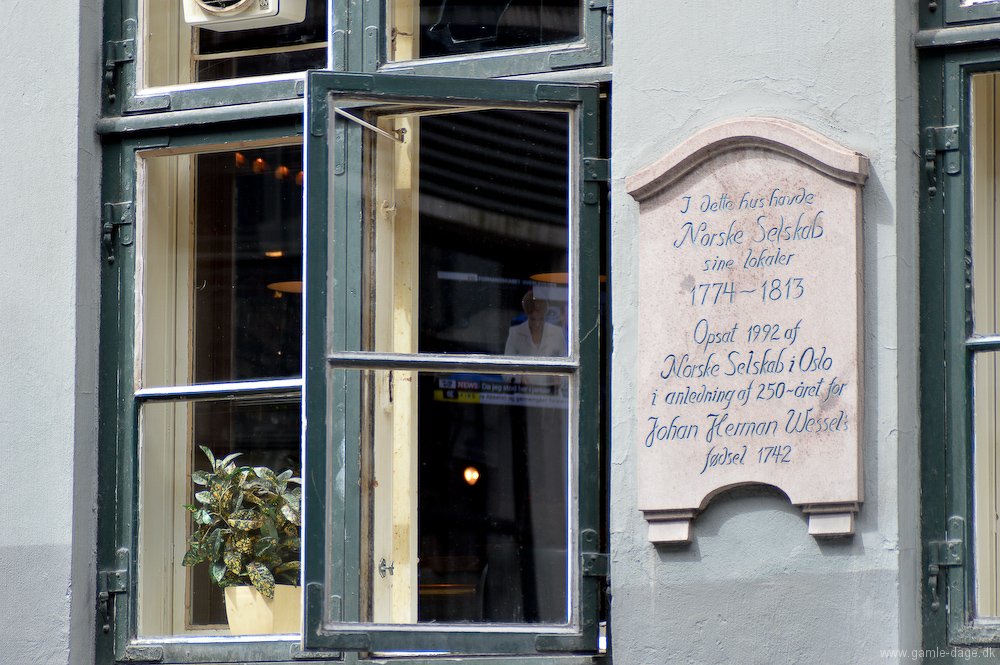 I dette hus havde
Norske Selskab
sine lokaler
1774~1813
Opsat 1992 af
Norske Selskab i Oslo
i anledning af 250~året for
Johan Herman Wessels
fødsel 1742
NEWS
Da jeg stod her i
www.gamle-dage.dk